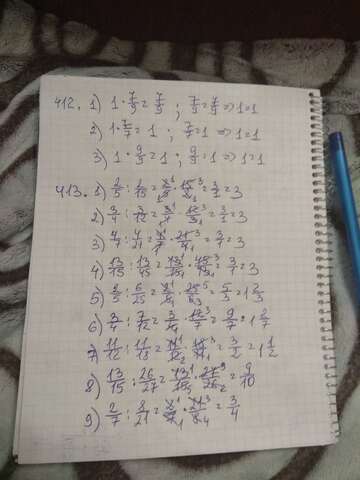 412. 1) 1 · 7/9 = 7/9 ; 7/9 = 7/9 ⇒ 1=1
2) 1 · 7/7 = 1 ; 7/7 = 1 ⇒ 1=1
3) 1 · 9/9 = 1 ; 9/9 = 1 ⇒ 1=1
413. 1) 2/5 : 2/15 = 2/5 · 15/2 = 3/1 = 3
2) 3/4 : 3/12 = 3/4 · 12/3 = 3/1 = 3
3) 4/7 : 4/21 = 4/7 · 21/4 = 3/1 = 3
4) 13/15 : 13/45 = 13/15 · 45/13 = 3/1 = 3
5) 2/5 : 6/25 = 2/5 · 25/6 = 5/3 = 1 2/3
6) 3/4 : 7/12 = 3/4 · 12/7 = 9/7 = 1 2/7
7) 11/12 : 11/18 = 11/12 · 18/11 = 3/2 = 1 1/2
8) 13/15 : 26/27 = 13/15 · 27/26 = 9/10
9) 2/7 : 8/21 = 2/7 · 21/8 = 3/4